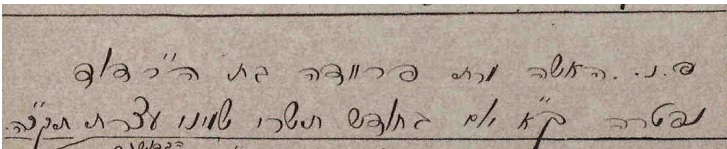 פ.נ. האשה מרת פריידה בת ה"ר דוד
נפטרה כ"א יום בחודש תשרי שמיני עצרת